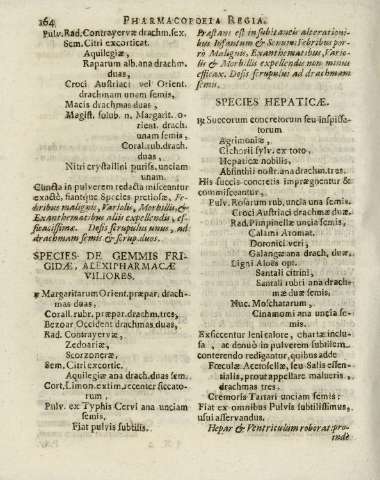 164 PHARMACOPOEIA REGIA.
Pulv. Rad. Contrayervæ drachm. sex.
Sem. Citri excorticat.
Aquilegiæ,
Raparum alb. ana drachm.
duas,
Croci Austriaci vel Orient.
drachmam unam semis,
Macis drachmas duas,
Magist. solub. n. Margarit. o-
rient. drach.
unam semis,
Coral. rub. drach.
duas,
Nitri crystallini puriss. unciam
unam.
Cuncta in pulverem redacta misceantur
exactè, fiantque Species pretiosæ, Fe-
bribus malignis, Variolis, Morbillis, &
Exanthematibus aliis expellendis, ef-
ficacissimæ. Dosis scrupulus unus, ad
drachmam semis & scrup. duos.
SPECIES DE GEMMIS FRI-
GIDÆ, ALEXIPHARMACÆ
VILIORES.
℞ Margaritarum Orient. præpar. drach-
mas duas,
Corall. rubr. præpar. drachm. tres,
Bezoar Occident drachmas duas,
Rad. Contrayervæ,
Zedoariæ,
Scorzoneræ,
Sem. Citri excortic.
Aquilegiæ ana drach. duas sem.
Cort. Limon. extim. recenter siccato-
rum,
Pulv. ex Typhis Cervi ana unciam
semis.
Fiat pulvis subtilis.
Præstant est in subitaneis alterationi-
bus Infantum & Senum: Febribus por-
rò Malignis, Exanthematibus, Vario-
lis & Morbillis expellendis non minus
efficax. Dosis scrupulus ad drachmam
semis.
SPECIES HEPATICÆ.
℞ Succorum concretorum seu inspissa-
torum
Agrimoniæ,
Cichorii sylv. ex toto,
Hepaticæ nobilis,
Absinthii nostr. ana drachm. tres.
His succis concretis imprægnentur &
commisceantur,
Pulv. Rosarum rub. uncia una semis.
Croci Austriaci drachmæ duæ.
Rad. Pimpinellæ uncia semis,
Calami Aromat.
Doronici veri,
Galangæ ana drach. duæ.
Ligni Aloës opt.
Santali citrini,
Santali rubri ana drach-
mæ duæ semis,
Nuc. Moschatarum,
Cinamomi ana uncia se-
mis.
Exsiccentur leni calore, chartæ inclu-
sa, ac denuò in pulverem subtilem
conterendo redigantur, quibus adde
Fœculæ Acetosellæ, seu Salis essen-
tialis, prout appellare malueris,
drachmas tres.
Cremoris Tartari unciam semis:
Fiat ex omnibus Pulvis subtilissimus,
usui asservandus.
Hepar & Ventriculum roborat: pro-
inde